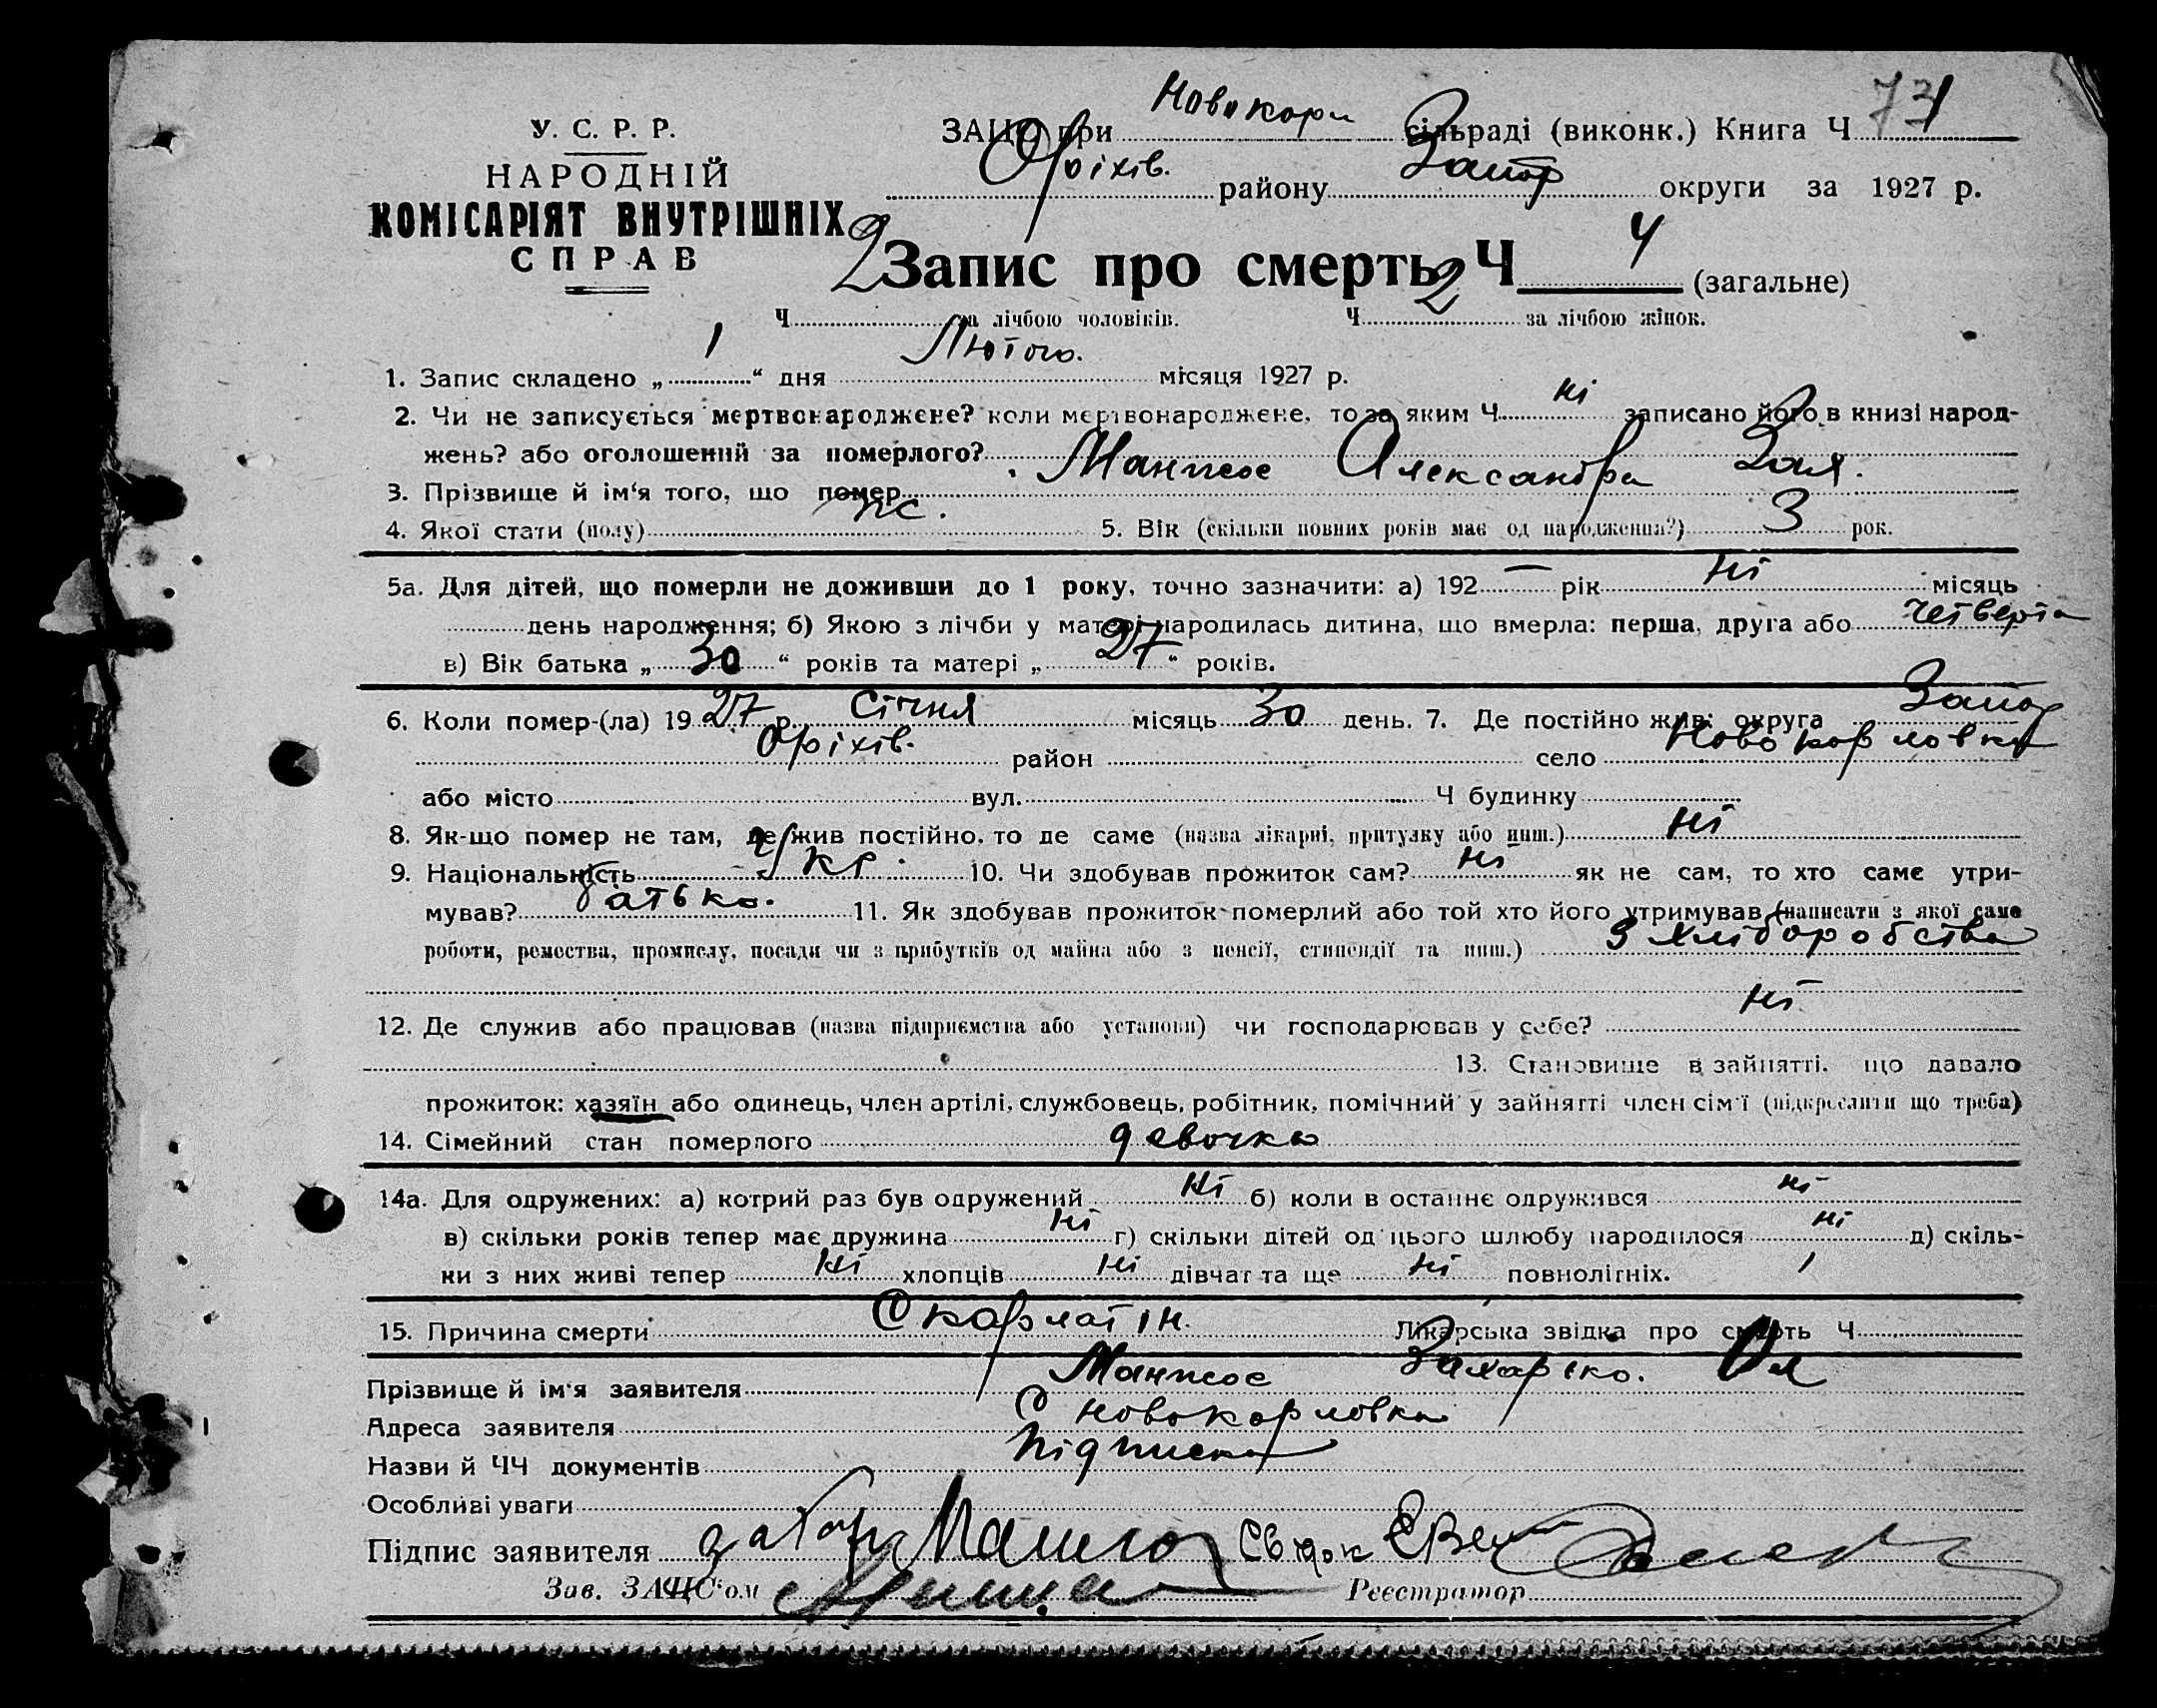 73 1
У. С. Р. Р.
НАРОДНІЙ
КОМІСАРІЯТ ВНУТРІШНІХ
СПРАВ
ЗАЦС при Новокарл сільраді (виконк.) Книга Ч
Оріхів. району Запор округи за 1927 р.
Запис про смерть Ч 4 (загальне)
Ч 2 за лічбою чоловіків. Ч 2 за лічбою жінок.
1. Запис складено „ 1 “ дня Лютого. місяця 1927 р.
2. Чи не записується мертвонароджене? коли мертвонароджене, то за яким Ч ні записано його в книзі народ-
жень? або оголошений за померлого?
3. Прізвище й ім‘я того, що помер Манжос Александра Зах.
4. Якої стати (полу) жс. 5. Вік (скільки повних років має од народження?) 3 рок.
5а. Для дітей, що померли не доживши до 1 року, точно зазначити: а) 192 — рік ні місяць
день народження; б) Якою з лічби у матері народилась дитина, що вмерла: перша, друга або четверта
в) Вік батька „ 30 “ років та матері „ 27 “ років.
6. Коли помер-(ла) 1927 р. Січня місяць 30 день. 7. Де постійно жив: округа Запор
Оріхів. район село Новокарловка
або місто вул. Ч будинку
8. Як-що помер не там, де жив постійно, то де саме (назва лікарні, притулку або инш.) ні
9. Національність Укр. 10. Чи здобував прожиток сам? ні як не сам, то хто саме утри-
мував? батько. 11. Як здобував прожиток померлий або той хто його утримував (написати з якої саме
роботи, ремества, промислу, посади чи з прибутків од майна або з пенсії, стипендії та инш.) з хліборобства
12. Де служив або працював (назва підприємства або установи) чи господарював у себе? ні
13. Становище в зайнятті, що давало
прожиток: хазяїн або одинець, член артілі, службовець, робітник, помічний у зайнятті член сім‘ї (підкреслити що треба)
14. Сімейний стан померлого девочка
14а. Для одружених: а) котрий раз був одружений ні б) коли в останнє одружився ні
в) скільки років тепер має дружина ні г) скільки дітей од цього шлюбу народилося ні д) скіль-
ки з них живі тепер ні хлопців ні дівчат та ще ні повнолітніх.
15. Причина смерти Скарлатін. Лікарська звідка про смерть Ч
Прізвище й ім‘я заявителя Манжос Захарько.
Адреса заявителя С Новокарловка
Назви й ЧЧ документів Підписка
Особливі уваги
Підпис заявителя Свідок
Зав. ЗАЦС‘ом Реєстратор